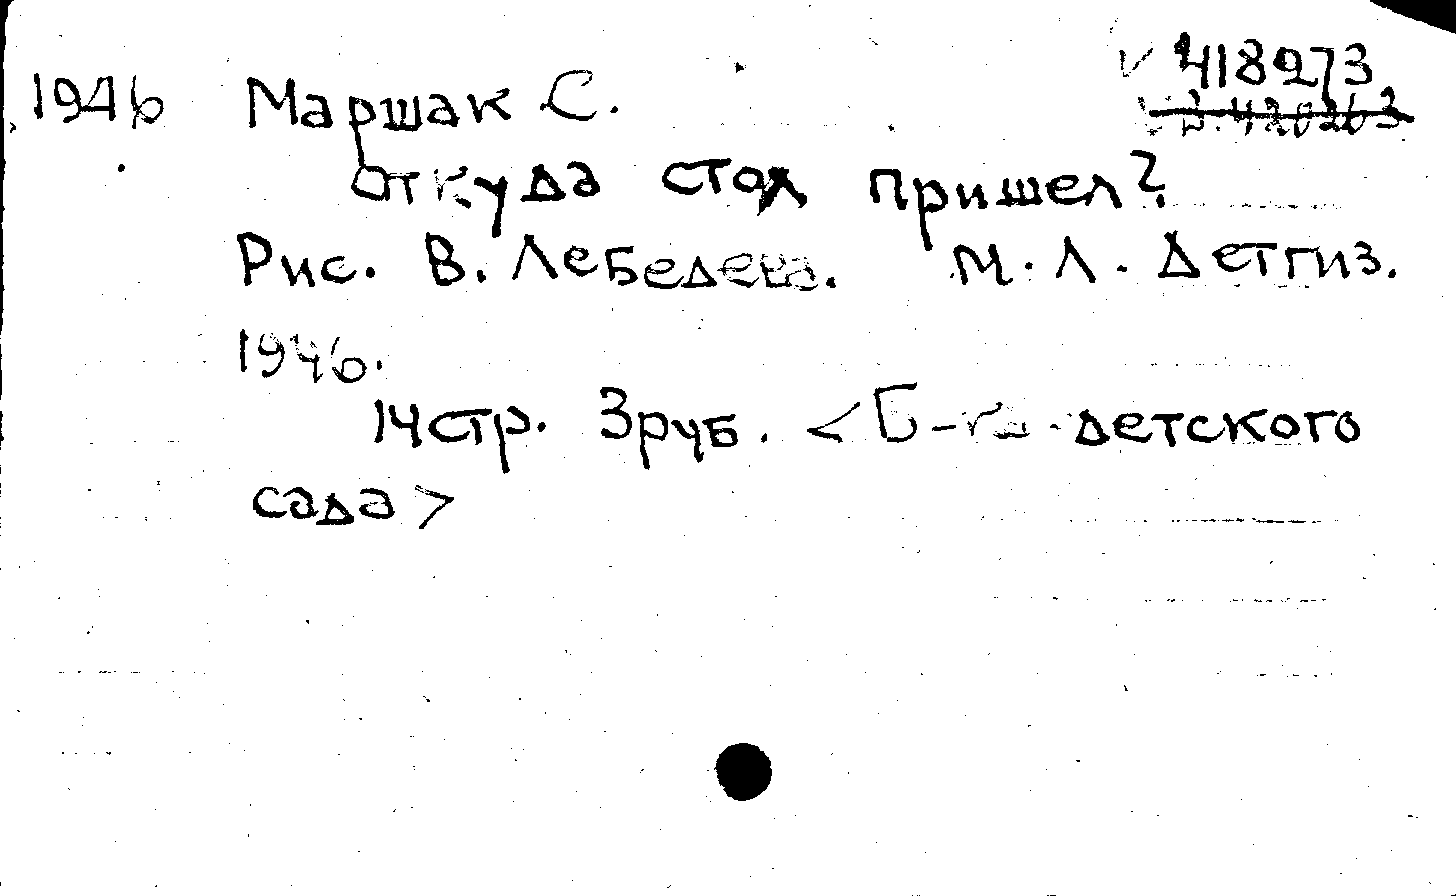 1946 Маршак С. V 418273
Откуда стол пришел?
Рис. В. Лебедева. М. Л. Детгиз.
1946.
14 стр. 3 руб. <Б-ка детского
сада>